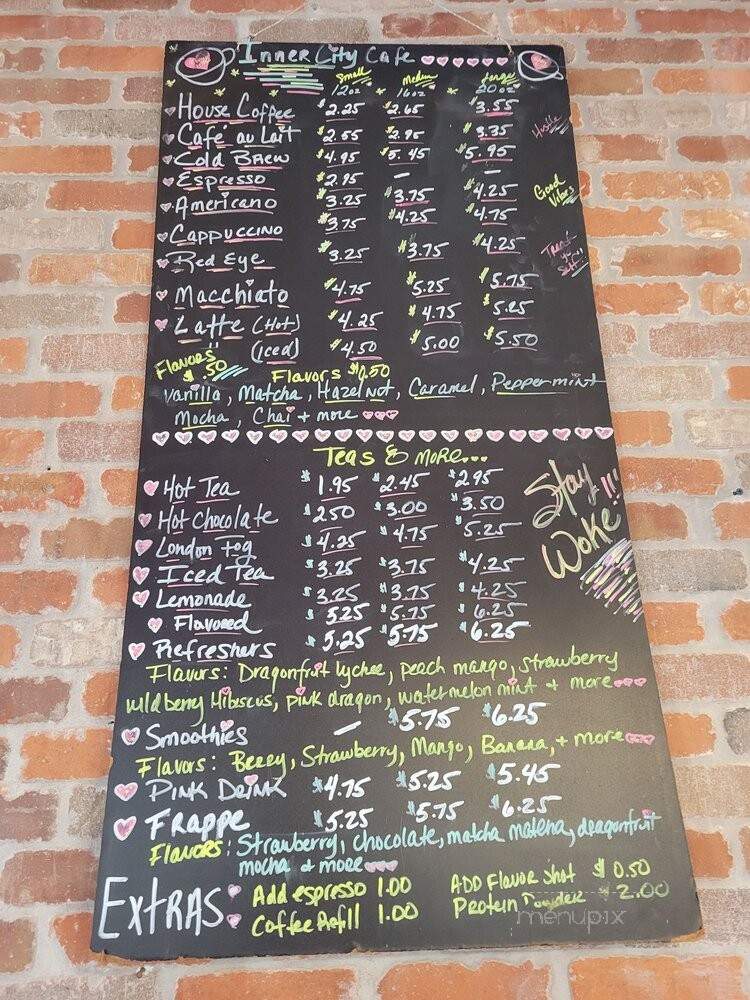 Inner City Cafe
Small Medium Large
12oz 16oz 20oz
House Coffee $2.25 $2.65 $3.55
Café au Lait $2.55 $2.95 $3.35
Cold Brew $4.95 $5.45 $5.95
Espresso $2.95 —
Americano $3.25 $3.75 $4.25
Cappuccino $3.75 $4.25 $4.75
Red Eye $3.25 $3.75 $4.25
Macchiato $4.75 $5.25 $5.75
Latte (Hot) $4.25 $4.75 $5.25
" (Iced) $4.50 $5.00 $5.50
Hustle
Good Vibes
Flavors $.50 Flavors $0.50
Vanilla, Matcha, Hazelnot, Caramel, Peppermint
Mocha, Chai + more
Teas & more...
Hot Tea $1.95 $2.45 $2.95
Hot Chocolate $2.50 $3.00 $3.50
London Fog $4.25 $4.75 $5.25
Iced Tea $3.25 $3.75 $4.25
Lemonade $3.25 $3.75 $4.25
Flavored $5.25 $5.75 $6.25
Refreshers $5.25 $5.75 $6.25
Stay Woke!!!
Flavors: Dragonfruit lychee, peach mango, strawberry
wildberry Hibiscus, pink dragon, watermelon mint + more
Smoothies — $5.75 $6.25
Flavors: Berry, Strawberry, Mango, Banana, + more
Pink Drink $4.75 $5.25 $5.45
Frappe $5.25 $5.75 $6.25
Flavors: Strawberry, chocolate, matcha, dragonfruit
mocha & more
Extras Add espresso 1.00 ADD Flavor Shot $0.50
Coffee Refill 1.00 Protein Powder $2.00
menupix